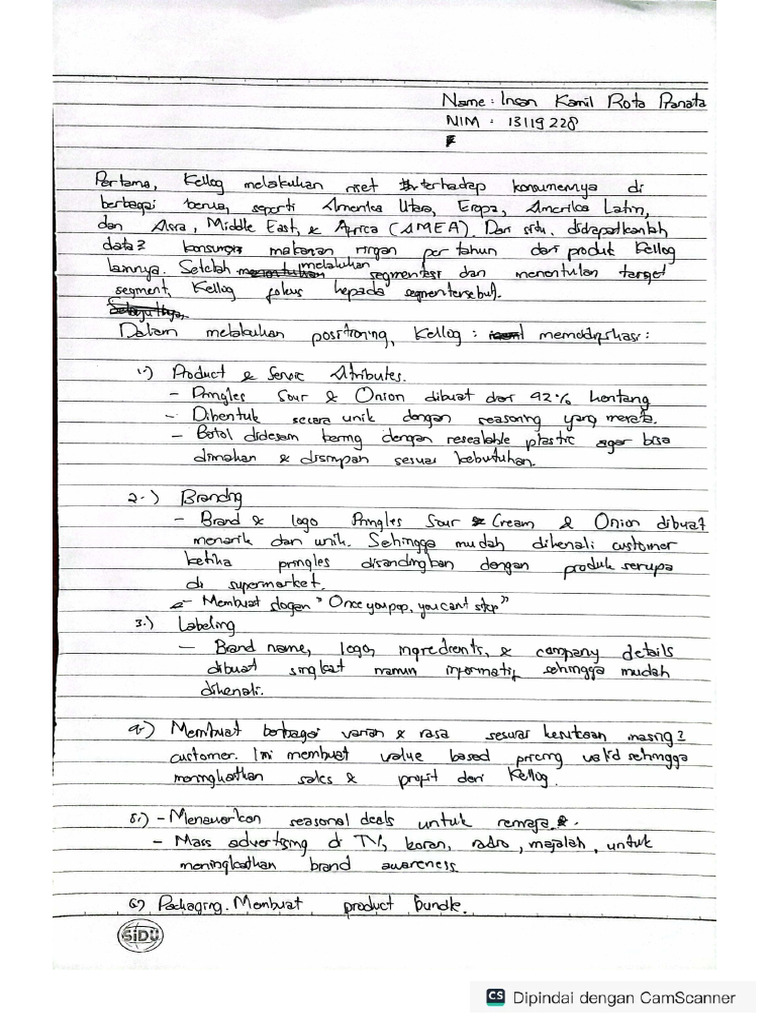 Name : Insan Kamil Rota Pranata
NIM : 13119228
Pertama, Kellog melakukan riset terhadap konsumennya di
berbagai benua, seperti Amerika Utara, Eropa, Amerika Latin,
dan Asia, Middle East, & Africa (AMEA). Dari situ, didapatkanlah
data2 konsumsi makanan ringan per tahun dari produk Kellog
lainnya. Setelah melakukan segmentasi dan menentukan target
segment, Kellog fokus kepada segmen tersebut.
Selanjutnya,
Dalam melakukan positioning, Kellog : memodifikasi :
1.) Product & Servic Atributes.
- Pringles Sour & Onion dibuat dari 42% kentang
- Dibentuk secara unik dengan seasoning yang merata.
- Botol didesain bering dengan resealable plastic agar bisa
dimakan & disimpan sesuai kebutuhan.
2.) Branding
- Brand & logo Pringles Sour & Cream & Onion dibuat
menarik dan unik. Sehingga mudah dikenali customer
ketika pringles disandingkan dengan produk serupa
di supermarket.
- Membuat slogan "Once you pop, you cant stop"
3.) Labeling
- Brand name, logo, ingredients, & company details
dibuat singkat namun informatif sehingga mudah
dikenali.
4.) Membuat berbagai varian & rasa sesuai kesukaan masing2
customer. Ini membuat value based pricing valid sehingga
meningkatkan sales & profit dari Kellog.
5.) - Menawarkan seasonal deals untuk remaja &.
- Mass advertising di TV, koran, radio, majalah, untuk
meningkatkan brand awareness.
6) Packaging. Membuat product bundle.
SiDU
CS Dipindai dengan CamScanner